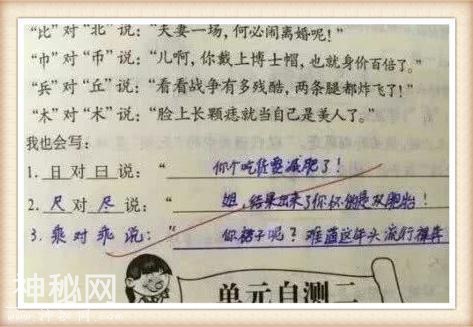 "比"对"北"说:"夫妻一场,何必闹离婚呢!"
"巾"对"币"说:"儿啊,你戴上博士帽,也就身价百倍了。"
"兵"对"丘"说:"看看战争有多残酷,两条腿都炸飞了!"
"木"对"术"说:"脸上长颗痣就当自己是美人了。"
我也会写:
1. 日 对 曰 说:" 你个吃货要减肥了!
2. 尺 对 尽 说:" 姐,结果出来了你怀的是双胞胎!
3. 乘 对 乖 说:" 你裙子呢?难道这年头流行裸奔
单元自测二
神秘网